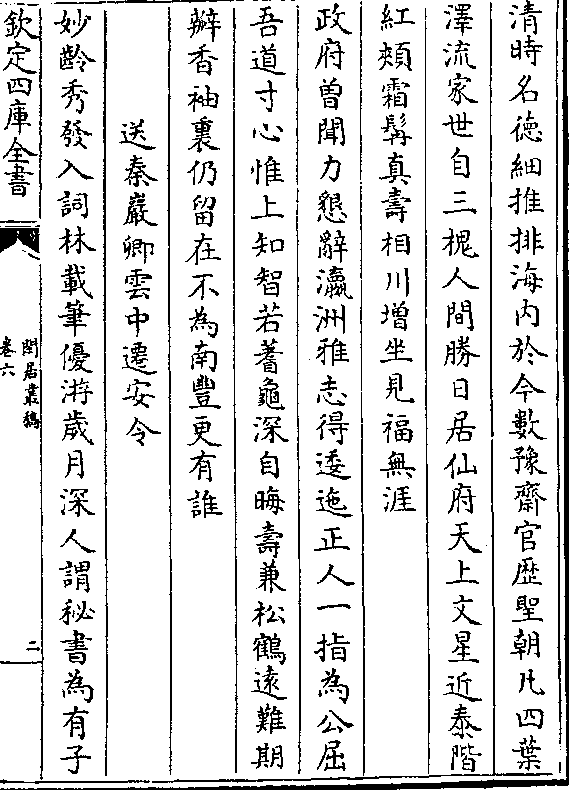 清時名徳細推排海内於今數豫齋官歴聖朝凡四葉
澤流家世自三槐人間勝日居仙府天上文星近泰階
紅頰霜髯真壽相川增坐見福無涯
政府曽聞力懇辭瀛洲雅志得逶迤正人一指為公屈
吾道寸心惟上知智若蓍龜深自晦壽兼松鶴遠難期
辦香袖裏仍留在不為南豐更有誰
送秦巖卿雲中遷安令
妙齡秀發入詞林載筆優游歲月深人謂秘書為有子
欽定四庫全書
閑居叢稿
卷六
二